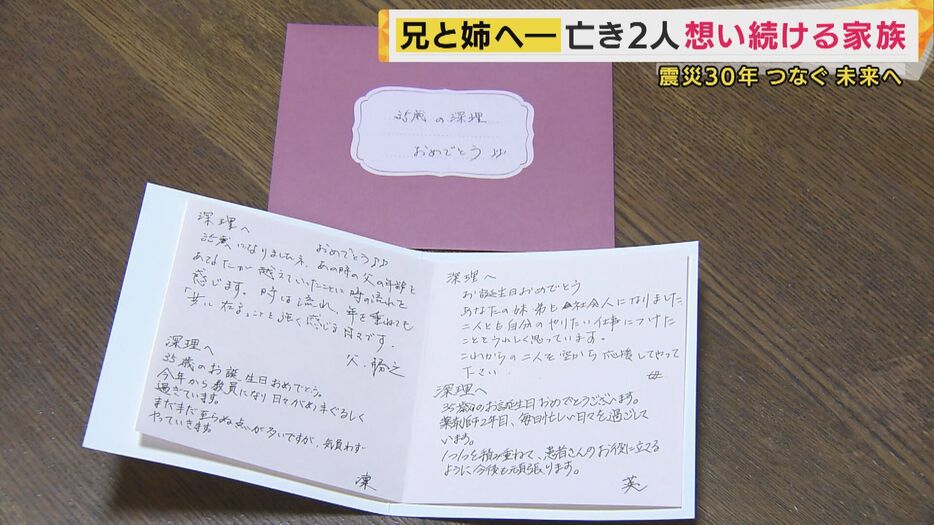 兄と姉へ― 亡き2人 想い続ける家族
震災30年 つなぐ 未来へ
35歳の深理
おめでとう♪♪
深理へ
おめでとう♪♪
35歳になりましたネ。あの時の父の年齢を
あなたが越えていたことに時の流れを
感じます。時は流れ、年を重ねても
「共に在る」ことを強く感じる日々です。
父.
深理へ
35歳のお誕生日おめでとう。
今年から教員になり日々がめまぐるしく
過ぎています。
まだまだ至らぬ点が多いですが、気負わず
やっていきます。
凜
深理へ
お誕生日おめでとう
あなたの妹弟も社会人になりました
二人とも自分のやりたい仕事につけた
ことをうれしく思っています。
これからの二人を空から応援してやって
下さい.
母
深理へ
35歳のお誕生日おめでとうございます。
薬剤師2年目、毎日忙しい日々を過ごして
います。
1つ1つを積み重ねて、患者さんのお役に立てる
ように今後も頑張ります。
英